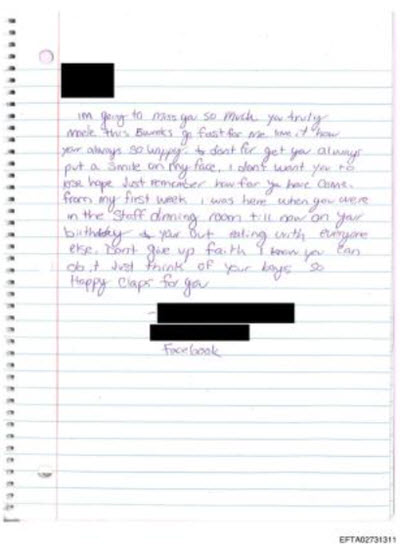 im going to miss you so much you truly
made this 8weeks go fast for me love it how
your always so happy & dont for get you always
put a smile on my face, I dont want you to
lose hope Just remember how far ya have come.
from my first week I was here when you were
in the staff dinning room till now on your
birthday & your out eating with everyone
else. Dont give up faith I know you can
do it Just think of your boys so
Happy Claps for you
Facebook
EFTA02731311